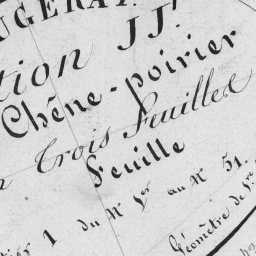 UGERAY.
tion JJ.
Chêne-poirier
Trois Feuilles
Feuille
1 du N.º 1.er au N.º 51.
Géomètre de 1.re